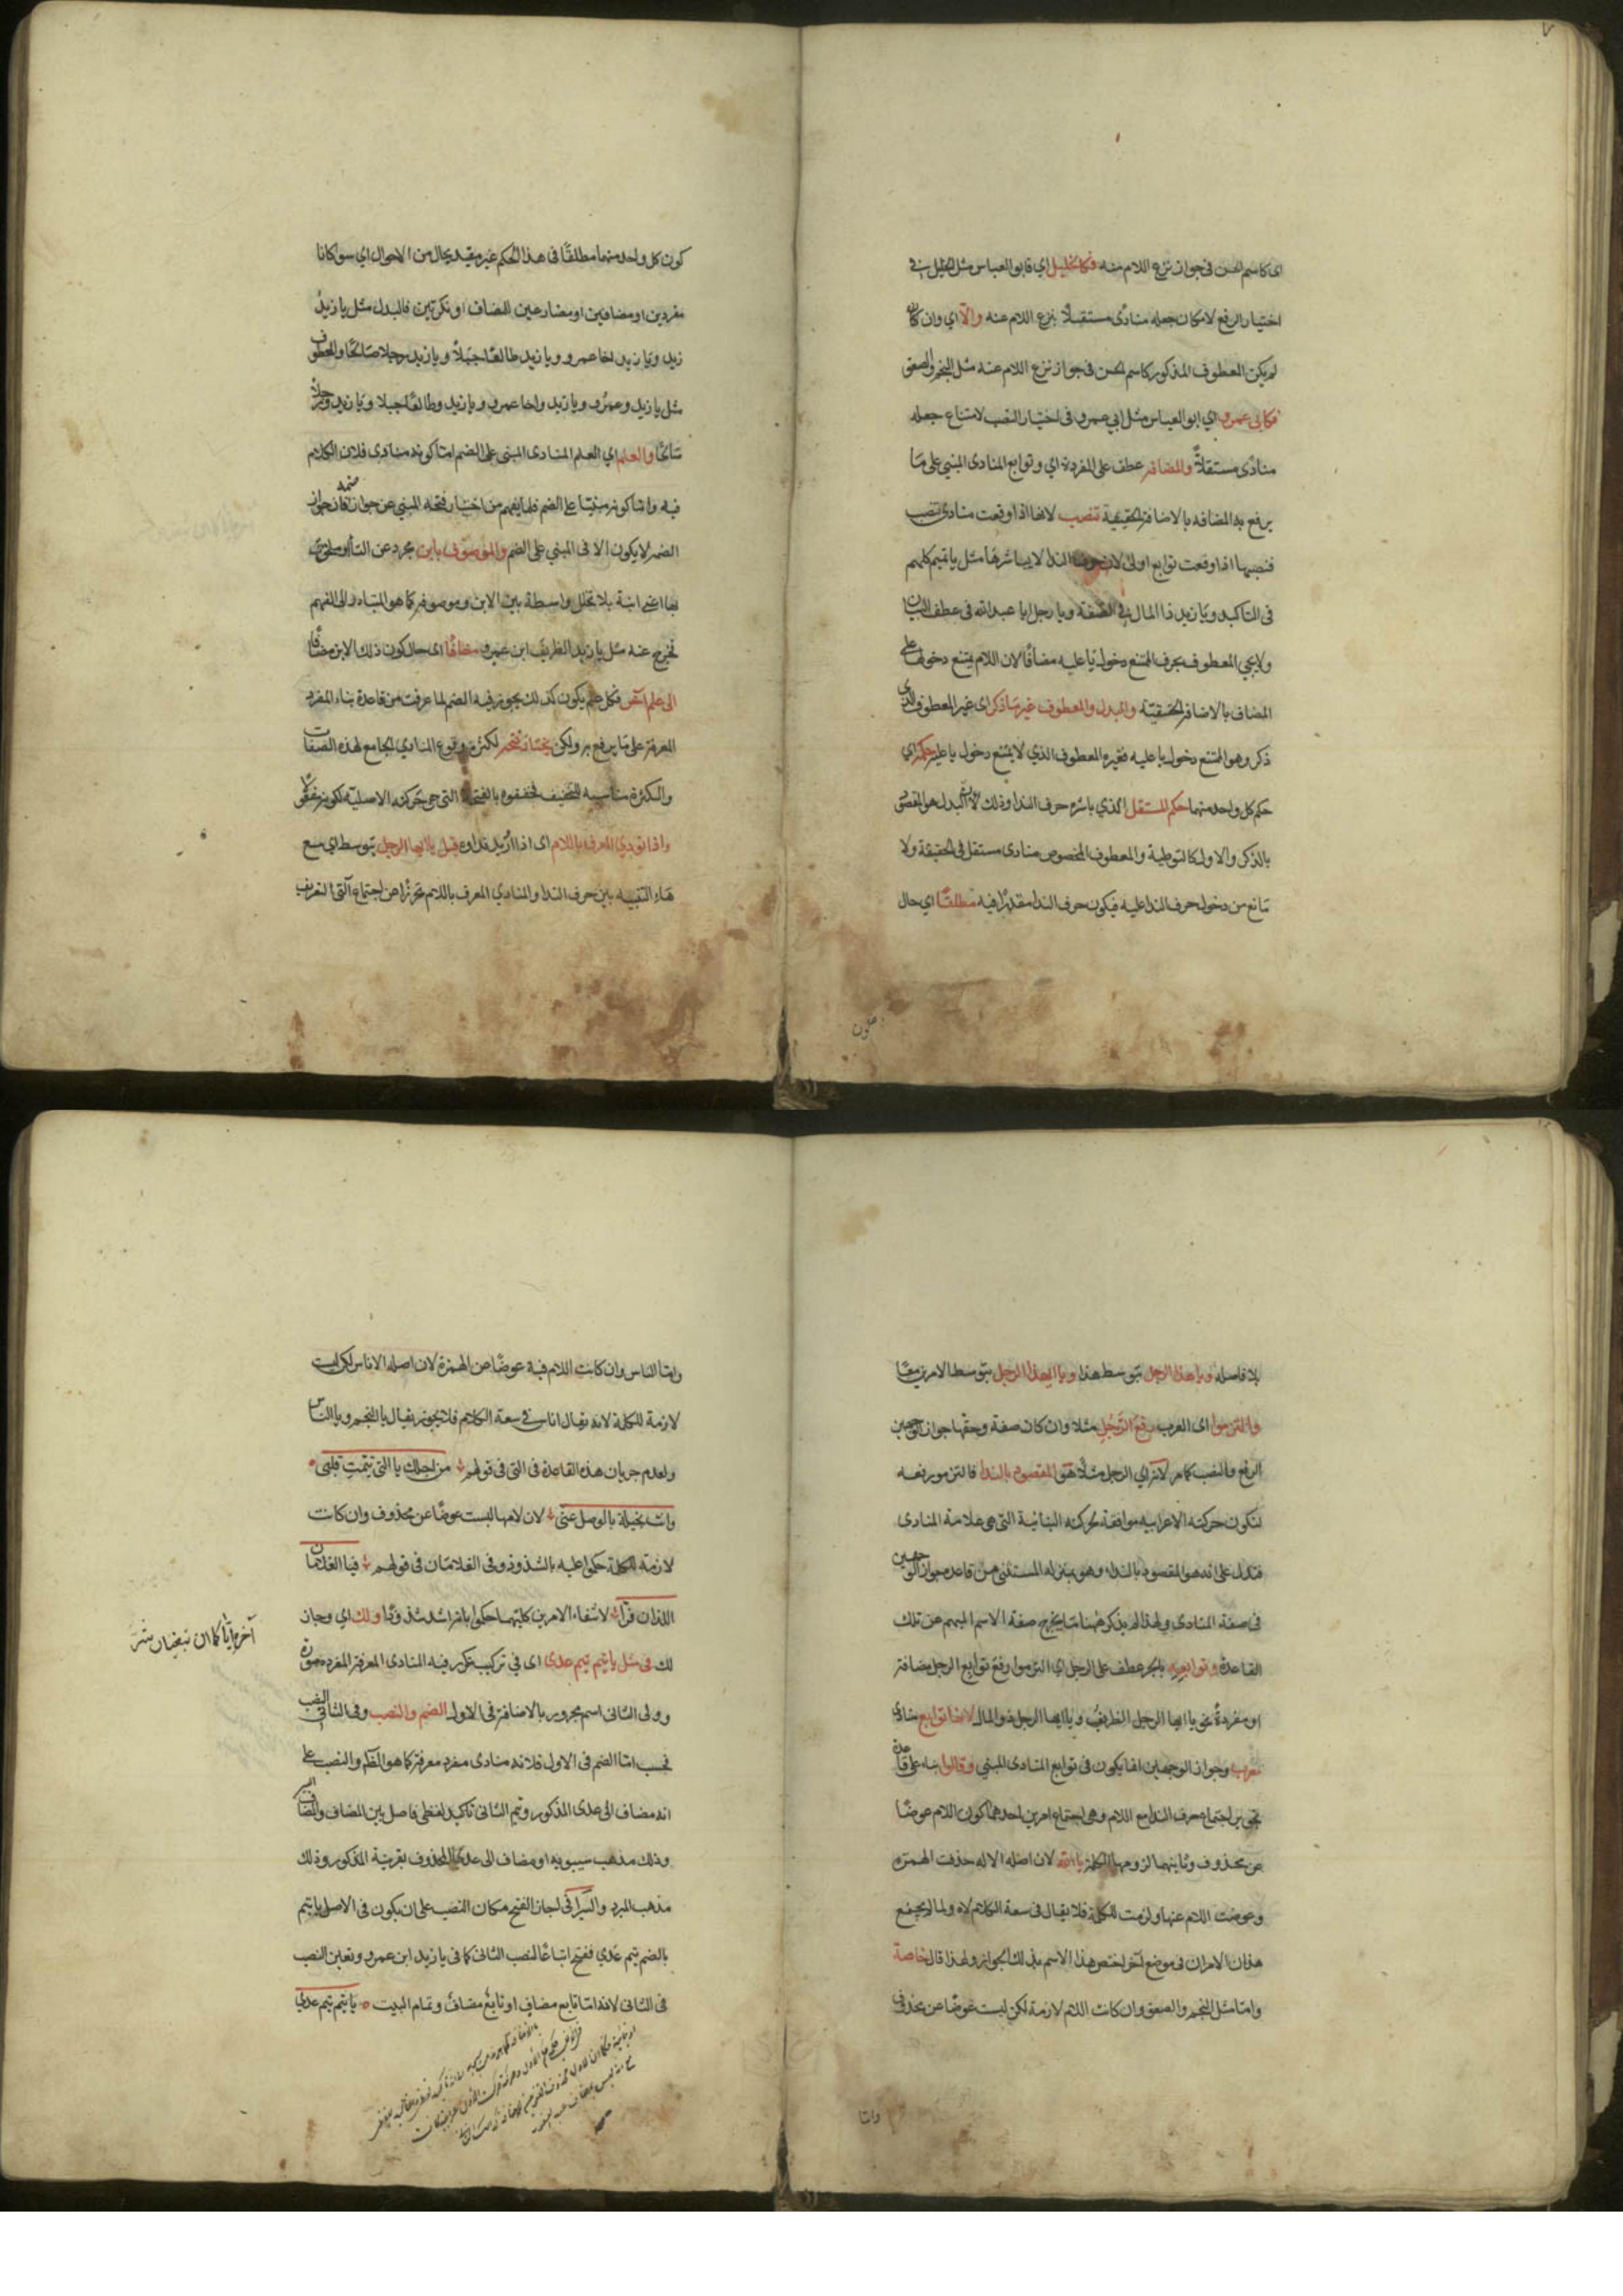 اى كاسم الحسن فى جواز نزع اللام منه فكالخليل اي فابو العباس مثل الخليل فى
اختيار الرفع لامكان جعله منادى مستقبلاً بنزع اللام عنه والّا اي وان كان
لم يكن المعطوف المذكور كاسم الحسن فى جواز نزع اللام عنه مثل النجم والصعق
فكابى عمرو اي ابو العباس مثل ابي عمرو فى اختيار النصب لامتناع جعله
منادى مستقلاً والمضافة عطف على المفردة اي وتوابع المنادى المبنى على مَا
يرفع به المضافة بالاضافة الحقيقية تنصب لانها اذا وقعت منادى تنصب
فنصبها اذا وقعت توابع اولى لان حرف الندا لا يباشرها مثل يا تميم كلهم
فى التاكيد ويا زيد ذا المال فى الصفة ويا رجل ابا عبد الله فى عطف البيان
ولا يجي المعطوف بحرف الممتنع دخول يا عليه مضافًا لان اللام يمتنع دخولها على
المضاف بالاضافة الحقيقيّة والبدل والمعطوف غير مَا ذكر اى غير المعطوف الذى
ذكر وهو الممتنع دخول يا عليه فغيره المعطوف الذي لا يمتنع دخول يا عليه حكمه اي
حكم كل واحد منهما حكم المستقل الذي باشره حرف الندا وذلك لان البدل هو المقصود
بالذكر والاول كالتوطية والمعطوف المخصوص منادى مستقل فى الحقيقة ولا
مَانع من دخول حرف الندا عليه فيكون حرف الندا مقدرًا فيه مطلقًا اي حال
كون كل واحد منهما مطلقًا فى هذا الحكم غير مقيد بحال من الاحوال اي سوا كانا
مفردين او مضافين او مضارعين للمضاف او نكرتين فالبدل مثل يا زيدُ
زيد ويا زيد اخا عمرو ويا زيد طالعًا جبلاً ويا زيد رجلا صَالحًا والمعطوف
مثل يا زيد وعمرُو ويا زيد واخا عمرو ويا زيد وطالعًا جبلا ويا زيد ورجلاً
صَالحًا والعلم اي العلم المنادى المبنى على الضم امّا كونه منادى فلان الكلام
فيه وامّا كونه مبنيّا على الضم فلما يفهم من اختيار فتحه المبنى عن جواز ضمه فان جواز
الضم لا يكون الا فى المبني على الضم والموصوف بابن مجرد عن التا او ملحوق
بها اعنى ابنة بلا تخلل واسطة بين الابن وموصوفه كما هو المتبادر الى الفهم
فخرج عنه مثل يا زيد الظريف ابن عمرو مضافًا اى حال كون ذلك الابن مضافًا
الى علم آخر فكل علم يكون كذلك يجوز فيه الضم لما عرفت من قاعدة بناء المفرد
المعرفة على مَا يرفع به ولكن يختار فتحه لكثرة وقوع المنادي الجامع لهذه الصفات
والكثرة مناسبة للتخفيف فخففوه بالفتحة التى هى حركته الاصليّة لكونه مفعولا
واذا نودي المعرف باللام اى اذا اريد نداوه قيل يا ايها الرجل بتوسط اي مع
هَاء التنبيه بين حرف الندا والمنادي المعرف باللام تحرزًا عن اجتماع آلتى التعريف
بلا فاصله ويا هذا الرجل بتوسط هذا ويا ايهذا الرجل بتوسط الامرين معًا
والتزموا اى العرب رفع الرّجُل مثلا وان كان صفة وحقها جواز الوجهين
الرفع والنصب كما مر لانه اي الرجل مثلًا هو المقصود بالندا فالتزموا رفعه
لتكون حركته الاعرابيه موافقة لحركته البنائية التى هى علامة المنادى
فتدل على انه هو المقصود بالنداء وهو بمنزلة المستثنى من قاعده جواز الوجهين
فى صفة المنادى ولهذا لم يذكر هٰهنا مَا يخرج صفة الاسم المبهم عن تلك
القاعدة وتوابعه بالجر عطف على الرجل اي التزموا رفع توابع الرجل مضافة
او مفردة نحو يا ايها الرجل الظريفُ ويا ايها الرجل ذو المال لانها توابع منادى
معرب وجواز الوجهين انما يكون فى توابع المنادى المبني وقالوا بناء على قاعدة
تجويز اجتماع حرف الندا مع اللام وهى اجتماع امرين احدهما كون اللام عوضًا
عن محذوف وثانيهما لزومها للكلمة يا الله لان اصله الاله حذفت الهمزه
وعوضت اللام عنها ولزمت للكلمة فلا يقال فى سعة الكلام لاه ولما لم يجتمع
هذان الامران فى موضع آخر اختص هذا الاسم بذلك الجواز ولهذا قال خاصة
وامّا مثل النجم والصعق وان كانت اللام لازمة لكن ليست عوضًا عن محذوف
وامّا
وامّا الناس وان كانت اللام فيه عوضًا عن الهمزة لان اصله الاناس لكن ليست
لازمة للكلمة لانه يقال اناس فى سعة الكلام فلا يجوز ان يقال يا النجم ويا الناس
ولعدم جريان هذه القاعدة فى التى فى قولهم من اجلك يا التى تيّمتِ قلبى
وانت بخيلة بالوصل عنّى لان لامها ليست عوضًا عن محذوف وان كانت
لازمة للكلمة حكموا عليه بالشذوذ وفى الغلامَان فى قولهم فيا الغلامان
اللذان فرّا لانتفاء الامرين كليهما حكموا بانه اشد شذوذًا ولك اي وجاز
لك فى مثل يا تيم تيم عدى اى في تركيب تكرر فيه المنادى المعرفة المفرد صورة
وولى الثانى اسم مجرور بالاضافة فى الاول الضم والنصب وفى الثانى النصب
فحسب امّا الضم فى الاول فلانه منادى مفرد معرفة كما هو الظ والنصب على
انه مضاف الى عدى المذكور وتيم الثانى تاكيد لفظى فاصل بين المضاف والمضاف اليه
وذلك مذهب سيبويه او مضاف الى عدى المحذوف بقرينة المذكور وذلك
مذهب المبرد والسّيرافى اجاز الفتح مكان النصب على ان يكون فى الاصل يا تيم
بالضم تيم عَدي ففتح اتباعًا لنصب الثانى كما فى يا زيد ابن عمرو وتعين النصب
فى الثانى لانه امّا تابع مضاف او تابعُ مضاف وتمام البيت يا تيم تيم عدى